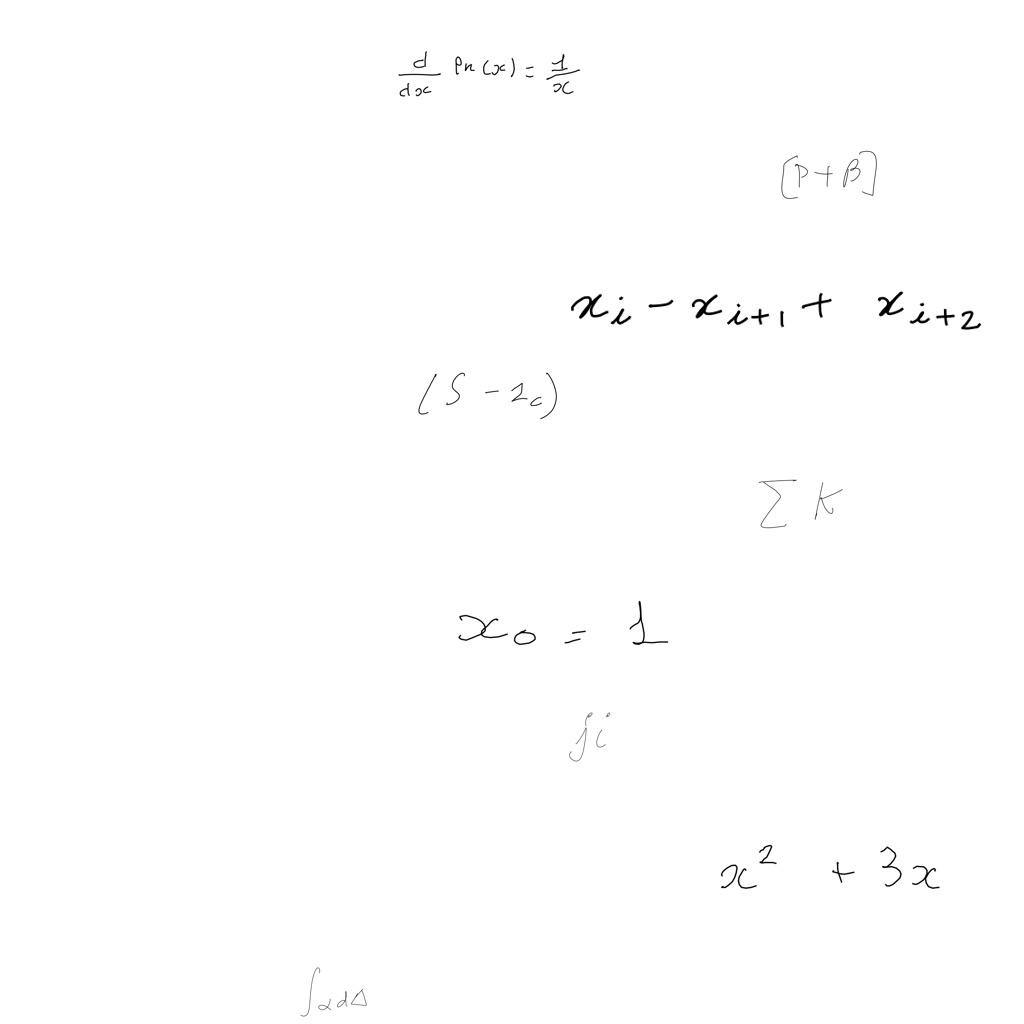 \frac{d}{dx} ln(x) = \frac{1}{x}
[P + β]
x_i - x_{i+1} + x_{i+2}
(S - 1_c)
∑ K
x_0 = 1
ji
x^2 + 3x
∫αdΔ